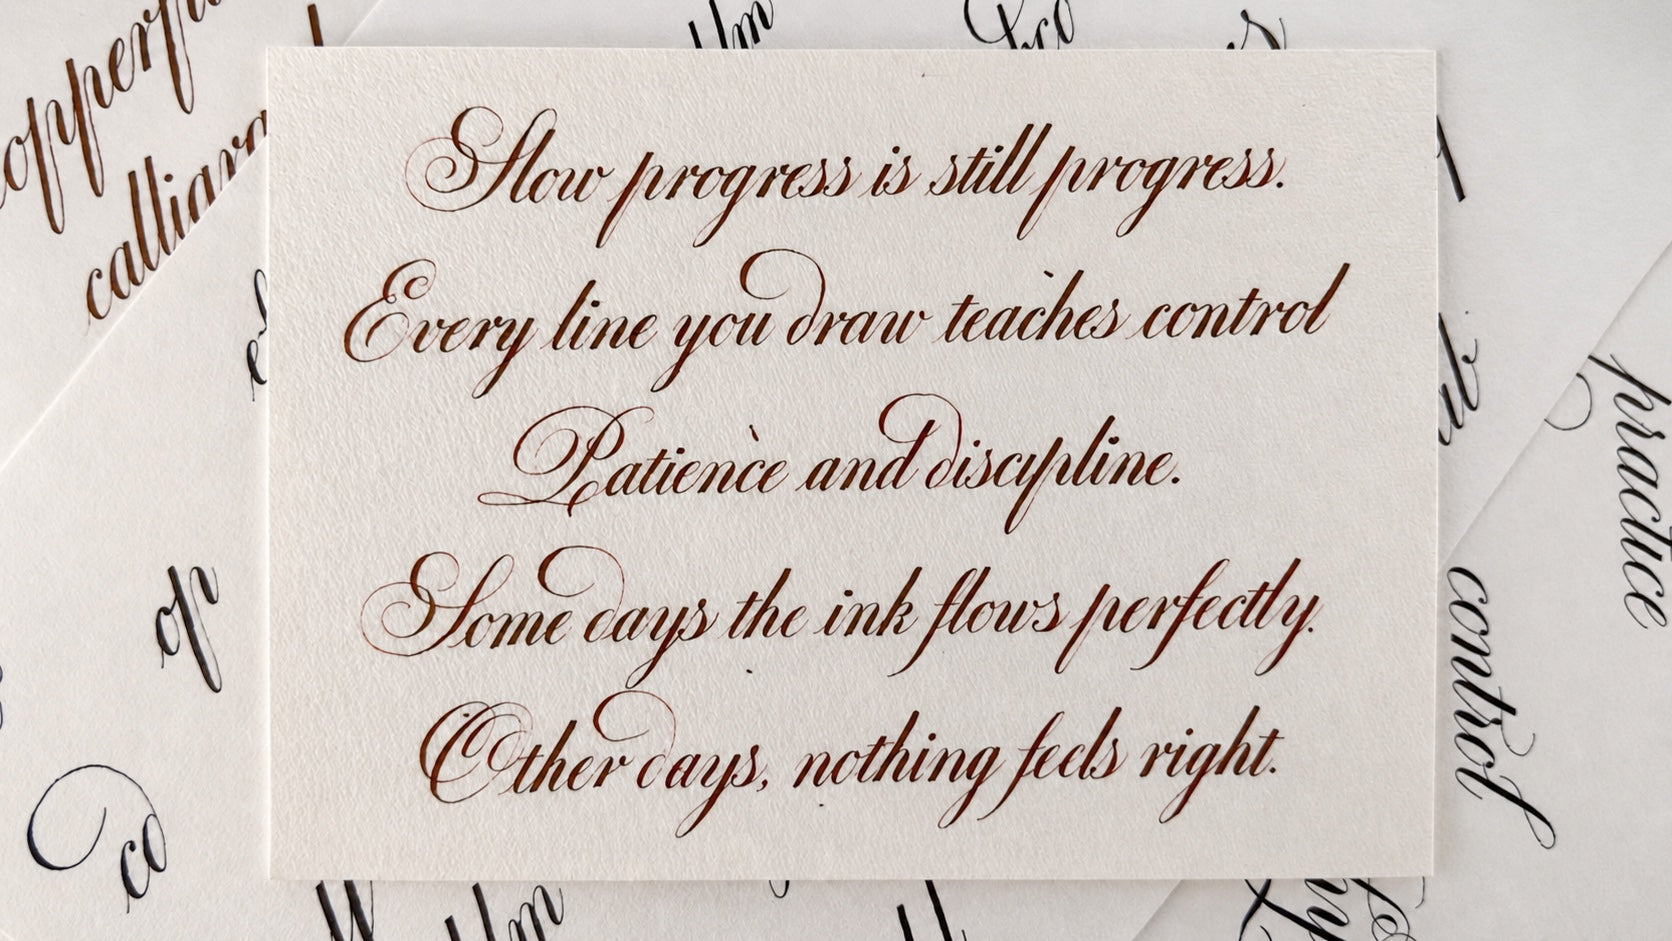 Slow progress is still progress.
Every line you draw teaches control
Patience and discipline.
Some days the ink flows perfectly.
Other days, nothing feels right.
practice
control
op
co